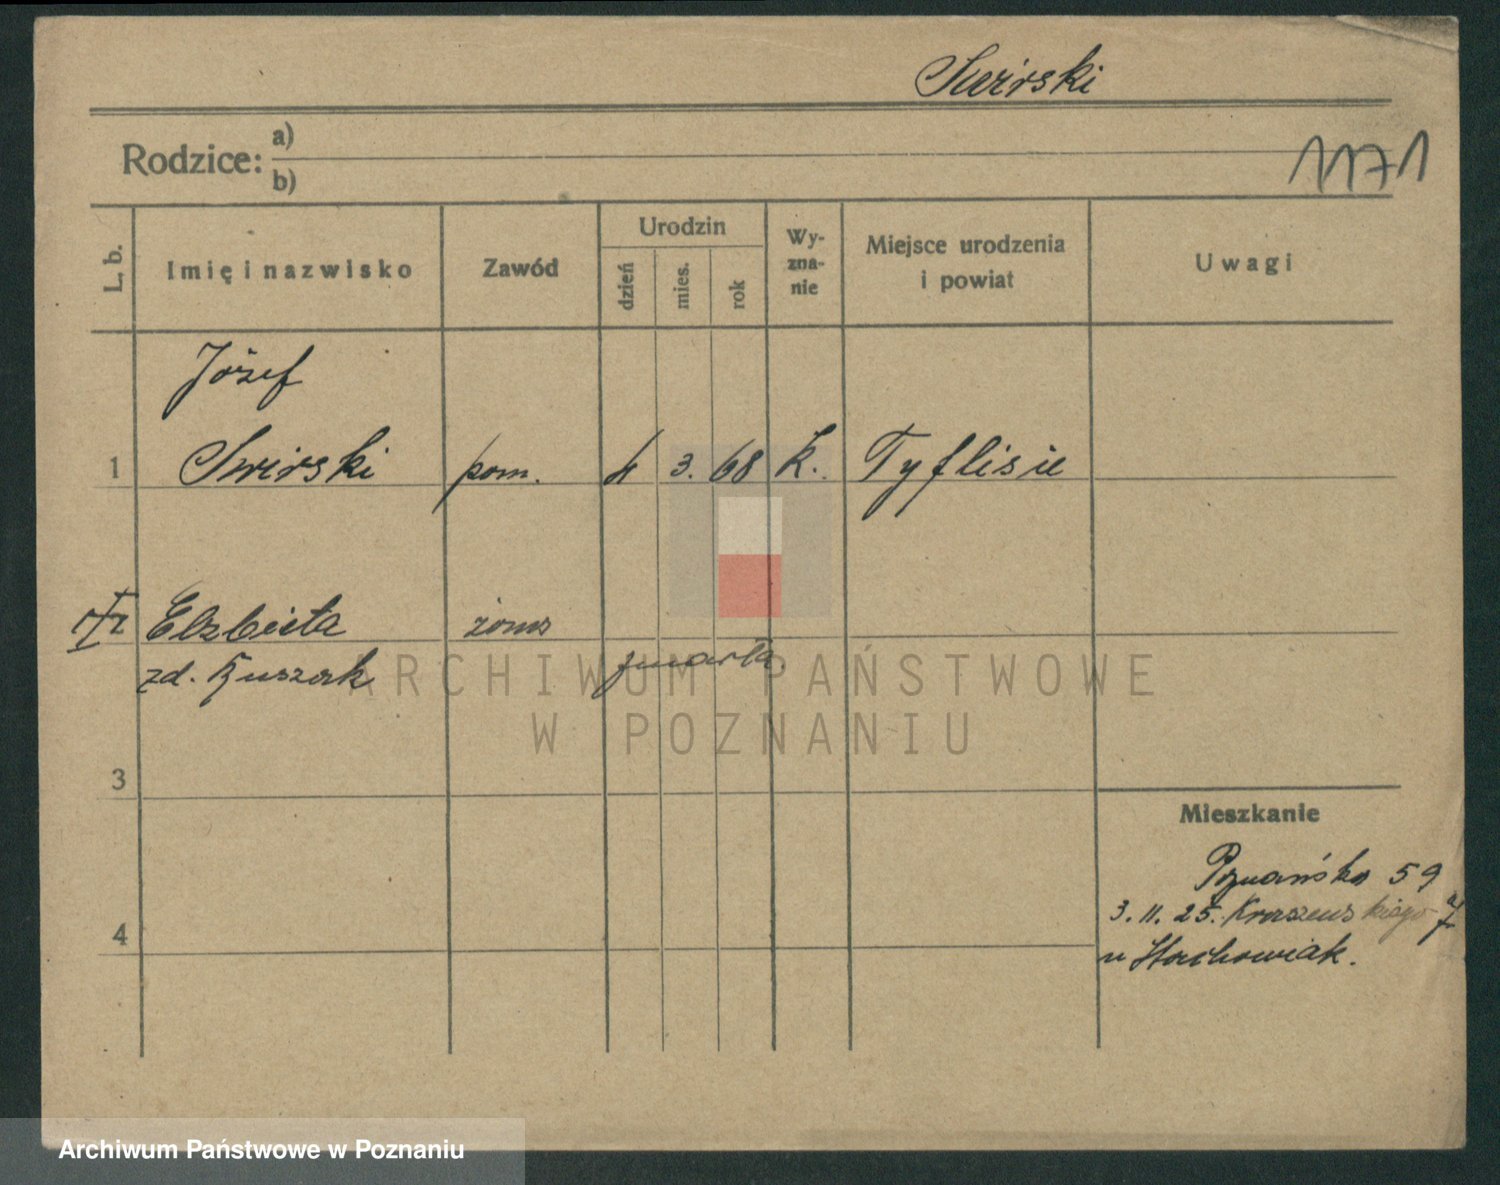 Swirski
Rodzice: a)
b)
1171
L. b.
Imię i nazwisko
Zawód
Urodzin
dzień
mies.
rok
Wy-
zna-
nie
Miejsce urodzenia
i powiat
Uwagi
Józef
1 Swirski pom. 4 3. 68 k. Tyflisie
Elzbieta żona
zd. zmarła
ARCHIWUM PAŃSTWOWE
W POZNANIU
3
Mieszkanie
Poznańska 59
3. 11. 25. Kraszewskiego 7
4
u Stachowiak.
Archiwum Państwowe w Poznaniu